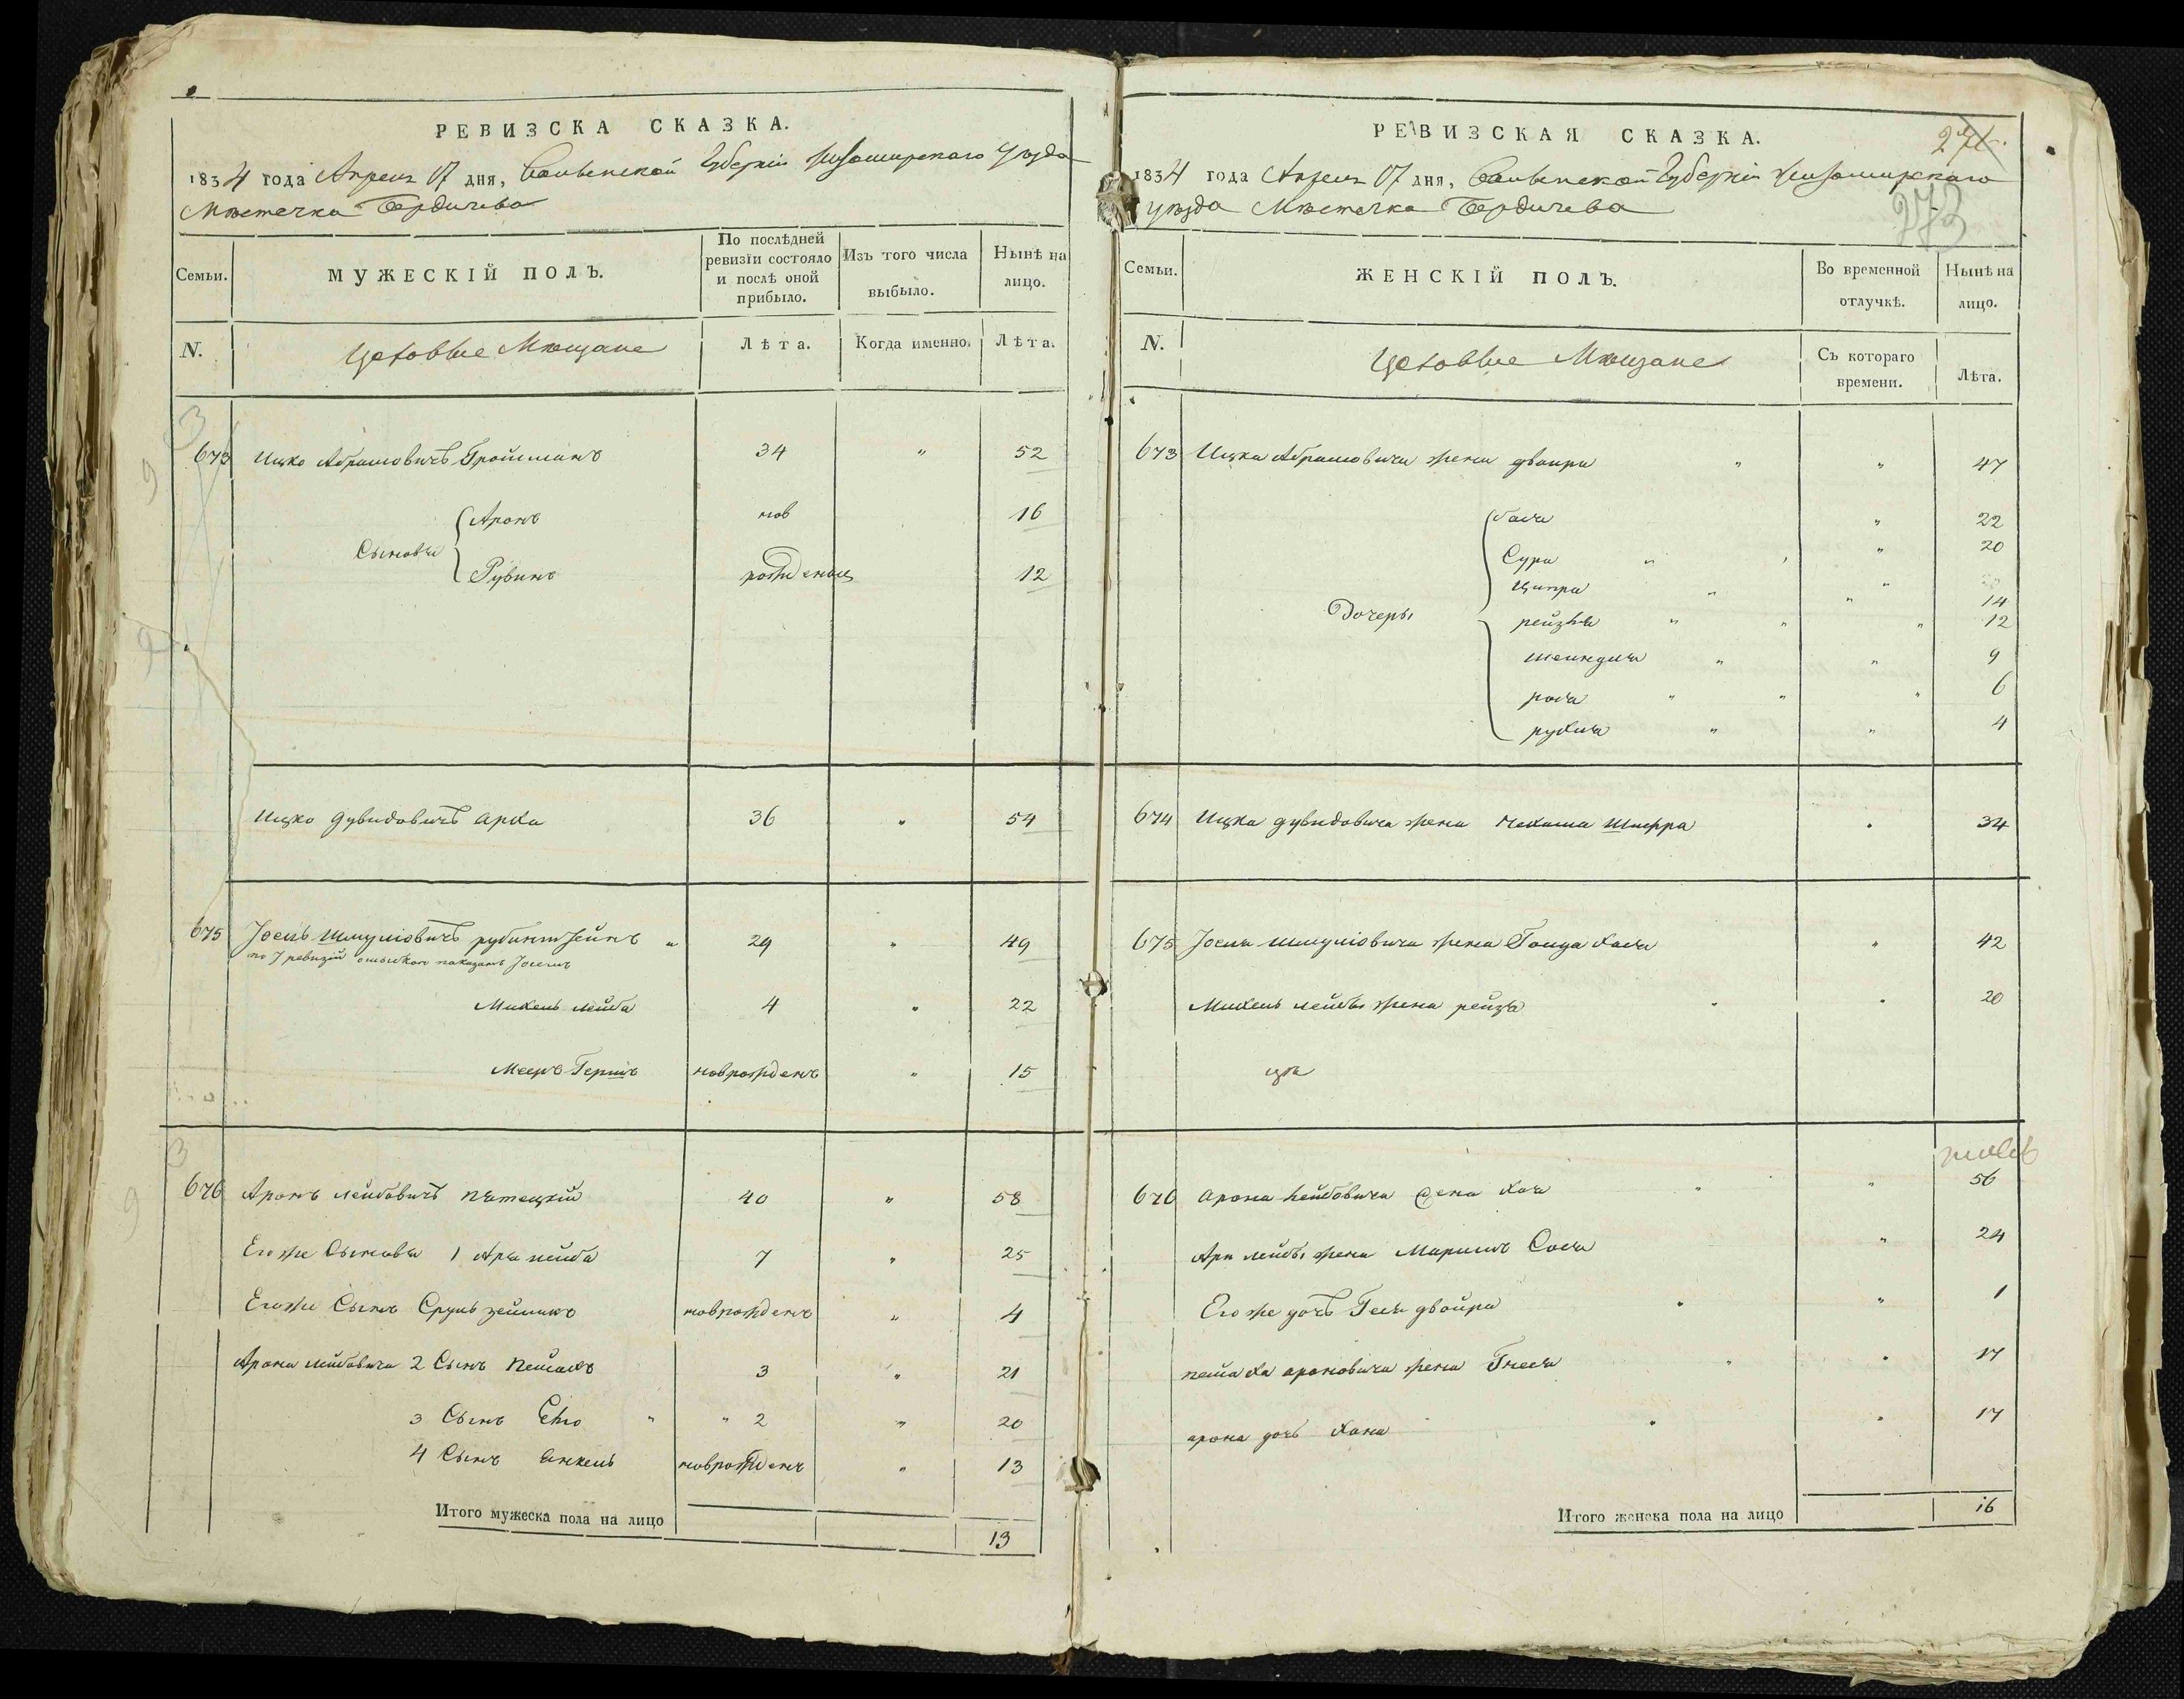 РЕВИЗСКА СКАЗКА.
1834 года Апреля 17 дня, Волынской Губерніи Житомирскаго Уѣзда
Мѣстечка Бердичева
Семьи.
МУЖЕСКІЙ ПОЛЪ.
По послѣдней ревизіи состояло и послѣ оной прибыло.
Изъ того числа выбыло.
Нынѣ на лицо.
N.
Цеховые Мещане
Лѣта.
Когда именно.
Лѣта.
673 Ицко Абрамовичъ Гройсманъ 34 " 52
Сыновья
Аронъ нов 16
Рувинъ рожденны 12
Ицко Дувидовичъ Арха 36 " 54
675 Іосль Шмуліовичъ рубинштейнъ " 29 " 49
по 7 ревизіи показанъ
Михель лейба 4 " 22
Мееръ Гершъ новрожденъ " 15
676 Аронъ лейбовичъ 40 " 58
Его же Сыновья 1 Арія лейба 7 " 25
Его же Сынъ Сруль новрожденъ " 4
Арона лейбовича 2 Сынъ Пейсахъ 3 " 21
3 Сынъ " " 2 " 20
4 Сынъ Янкель новрожденъ " 13
Итого мужеска пола на лицо 13
РЕВИЗСКАЯ СКАЗКА.
273
1834 года Апреля 17 дня, Волынской Губерніи Житомирскаго
уѣзда Мѣстечка Бердичева
Семьи.
ЖЕНСКІЙ ПОЛЪ.
Во временной отлучкѣ.
Нынѣ на лицо.
N.
Цеховые Мещане
Съ котораго времени.
Лѣта.
673 Ицка Абрамовича жена двойра " " 47
Дочеры
бася " 22
Сура " " 20
Ципра " " 14
рейзля " " " 12
шейндля " " 9
рося " " " 6
рухля " " 4
674 Ицка дувидовича жена Шифра " 34
675 Іосля Шмуліовича жена хася " 42
Михель лейбы жена рейзя " " 20
676 Арона лейбовича жена хая " " 56
Ари лейбы жена Маріимъ Сося " 24
Его же дочь Геся двойра " " 1
пейсаха ароновича жена Гнеся " " 17
арона дочь хана " " " 17
Итого женска пола на лицо 16